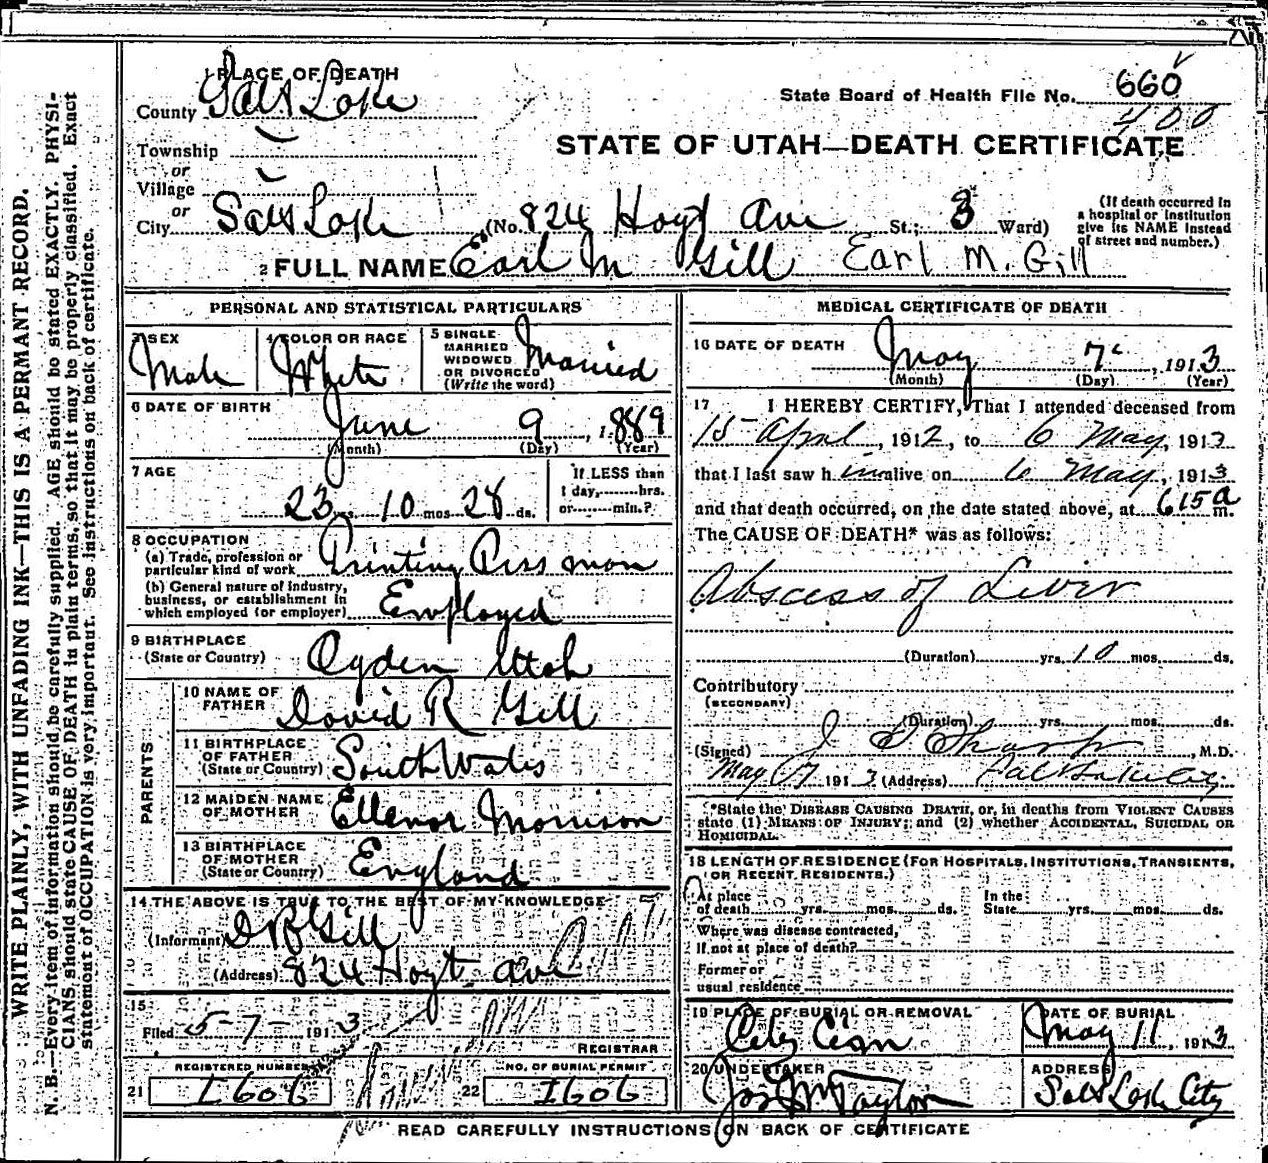 1 PLACE OF DEATH
County Salt Lake
State Board of Health File No. 660
400
Township
or
Village
or
STATE OF UTAH—DEATH CERTIFICATE
City Salt Lake (No. 824 Hoyt Ave St.; 3 Ward)
(If death occurred in a hospital or institution give its NAME instead of street and number.)
2 FULL NAME Earl M Gill Earl M. Gill
PERSONAL AND STATISTICAL PARTICULARS
3 SEX
Male
4 COLOR OR RACE
White
5 SINGLE
MARRIED
WIDOWED
OR DIVORCED
(Write the word)
Married
6 DATE OF BIRTH
June 9, 1889
(Month) (Day) (Year)
7 AGE
23 yrs. 10 mos. 28 ds.
If LESS than
1 day,......hrs.
or......min.?
8 OCCUPATION
(a) Trade, profession or
particular kind of work Printing Press man
(b) General nature of industry,
business, or establishment in
which employed (or employer) Employed
9 BIRTHPLACE
(State or Country) Ogden Utah
PARENTS
10 NAME OF
FATHER David R Gill
11 BIRTHPLACE
OF FATHER
(State or Country) South Wales
12 MAIDEN NAME
OF MOTHER Ellenor Morrison
13 BIRTHPLACE
OF MOTHER
(State or Country) England
14 THE ABOVE IS TRUE TO THE BEST OF MY KNOWLEDGE
(Informant) D R Gill
(Address) 824 Hoyt Ave
15
Filed 5-7- 1913
REGISTRAR
REGISTERED NUMBER
21 I606
NO. OF BURIAL PERMIT
22 I606
MEDICAL CERTIFICATE OF DEATH
16 DATE OF DEATH
May 7, 1913
(Month) (Day) (Year)
17 I HEREBY CERTIFY, That I attended deceased from
15 April, 1912, to 6 May, 1913
that I last saw him alive on 6 May, 1913
and that death occurred, on the date stated above, at 615 a m.
The CAUSE OF DEATH* was as follows:
Abscess of Liver
(Duration) yrs. 10 mos. ds.
Contributory
(SECONDARY)
(Duration) yrs. mos. ds.
(Signed) Sharp, M.D.
May 7 1913 (Address) Salt Lake City
*State the DISEASE CAUSING DEATH, or, in deaths from VIOLENT CAUSES
state (1) MEANS OF INJURY; and (2) whether ACCIDENTAL, SUICIDAL OR
HOMICIDAL.
18 LENGTH OF RESIDENCE (FOR HOSPITALS, INSTITUTIONS, TRANSIENTS,
OR RECENT RESIDENTS.)
At place
of death yrs. mos. ds.
In the
State yrs. mos. ds.
Where was disease contracted,
If not at place of death?
Former or
usual residence
19 PLACE OF BURIAL OR REMOVAL
City Cem
DATE OF BURIAL
May 11, 1913
20 UNDERTAKER
Jos Wm Taylor
ADDRESS
Salt Lake City
READ CAREFULLY INSTRUCTIONS ON BACK OF CERTIFICATE
WRITE PLAINLY, WITH UNFADING INK—THIS IS A PERMANT RECORD.
N. B.—Every item of information should be carefully supplied. AGE should be stated EXACTLY. PHYSI-
CIANS should state CAUSE OF DEATH in plain terms, so that it may be properly classified. Exact
statement of OCCUPATION is very important. See instructions on back of certificate.